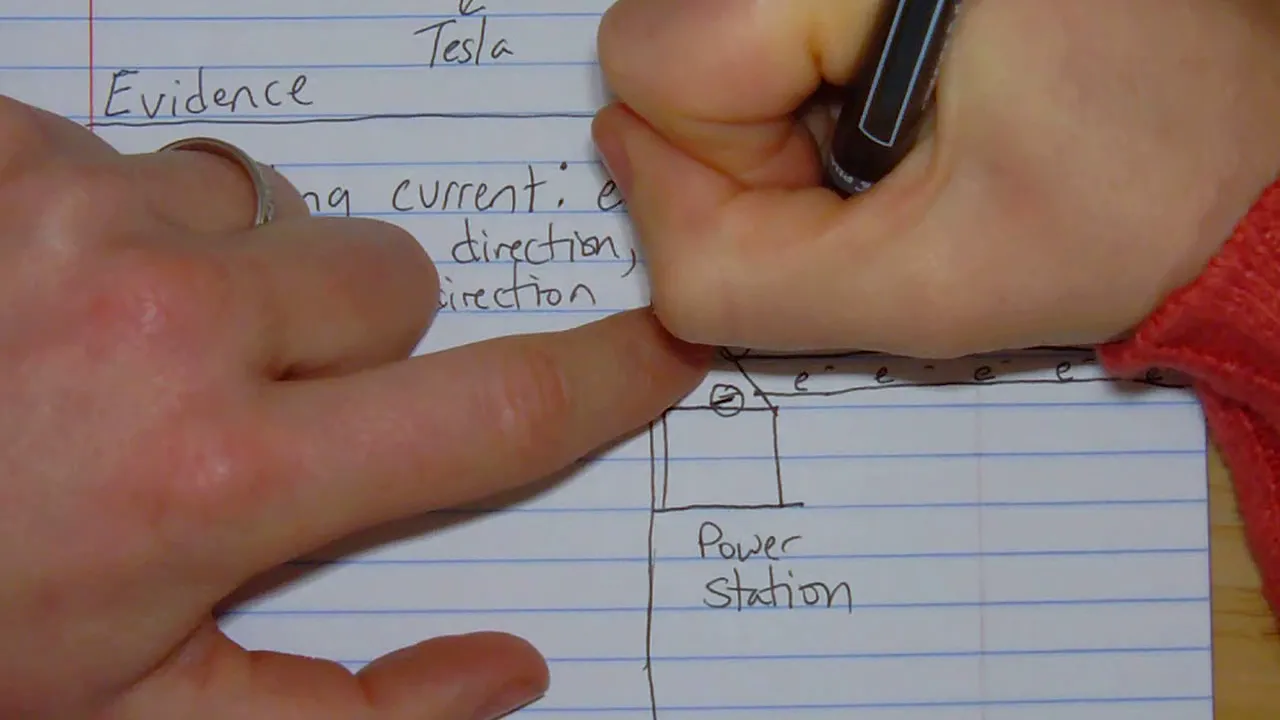 Tesla
Evidence
current:
direction,
direction
e⁻ e⁻ e⁻ e⁻ e
Power
station